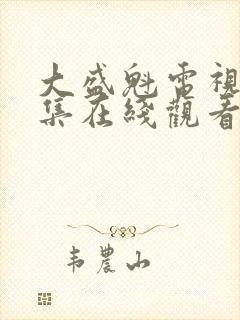 大盛魁電視
集在綫觀看
韦農山